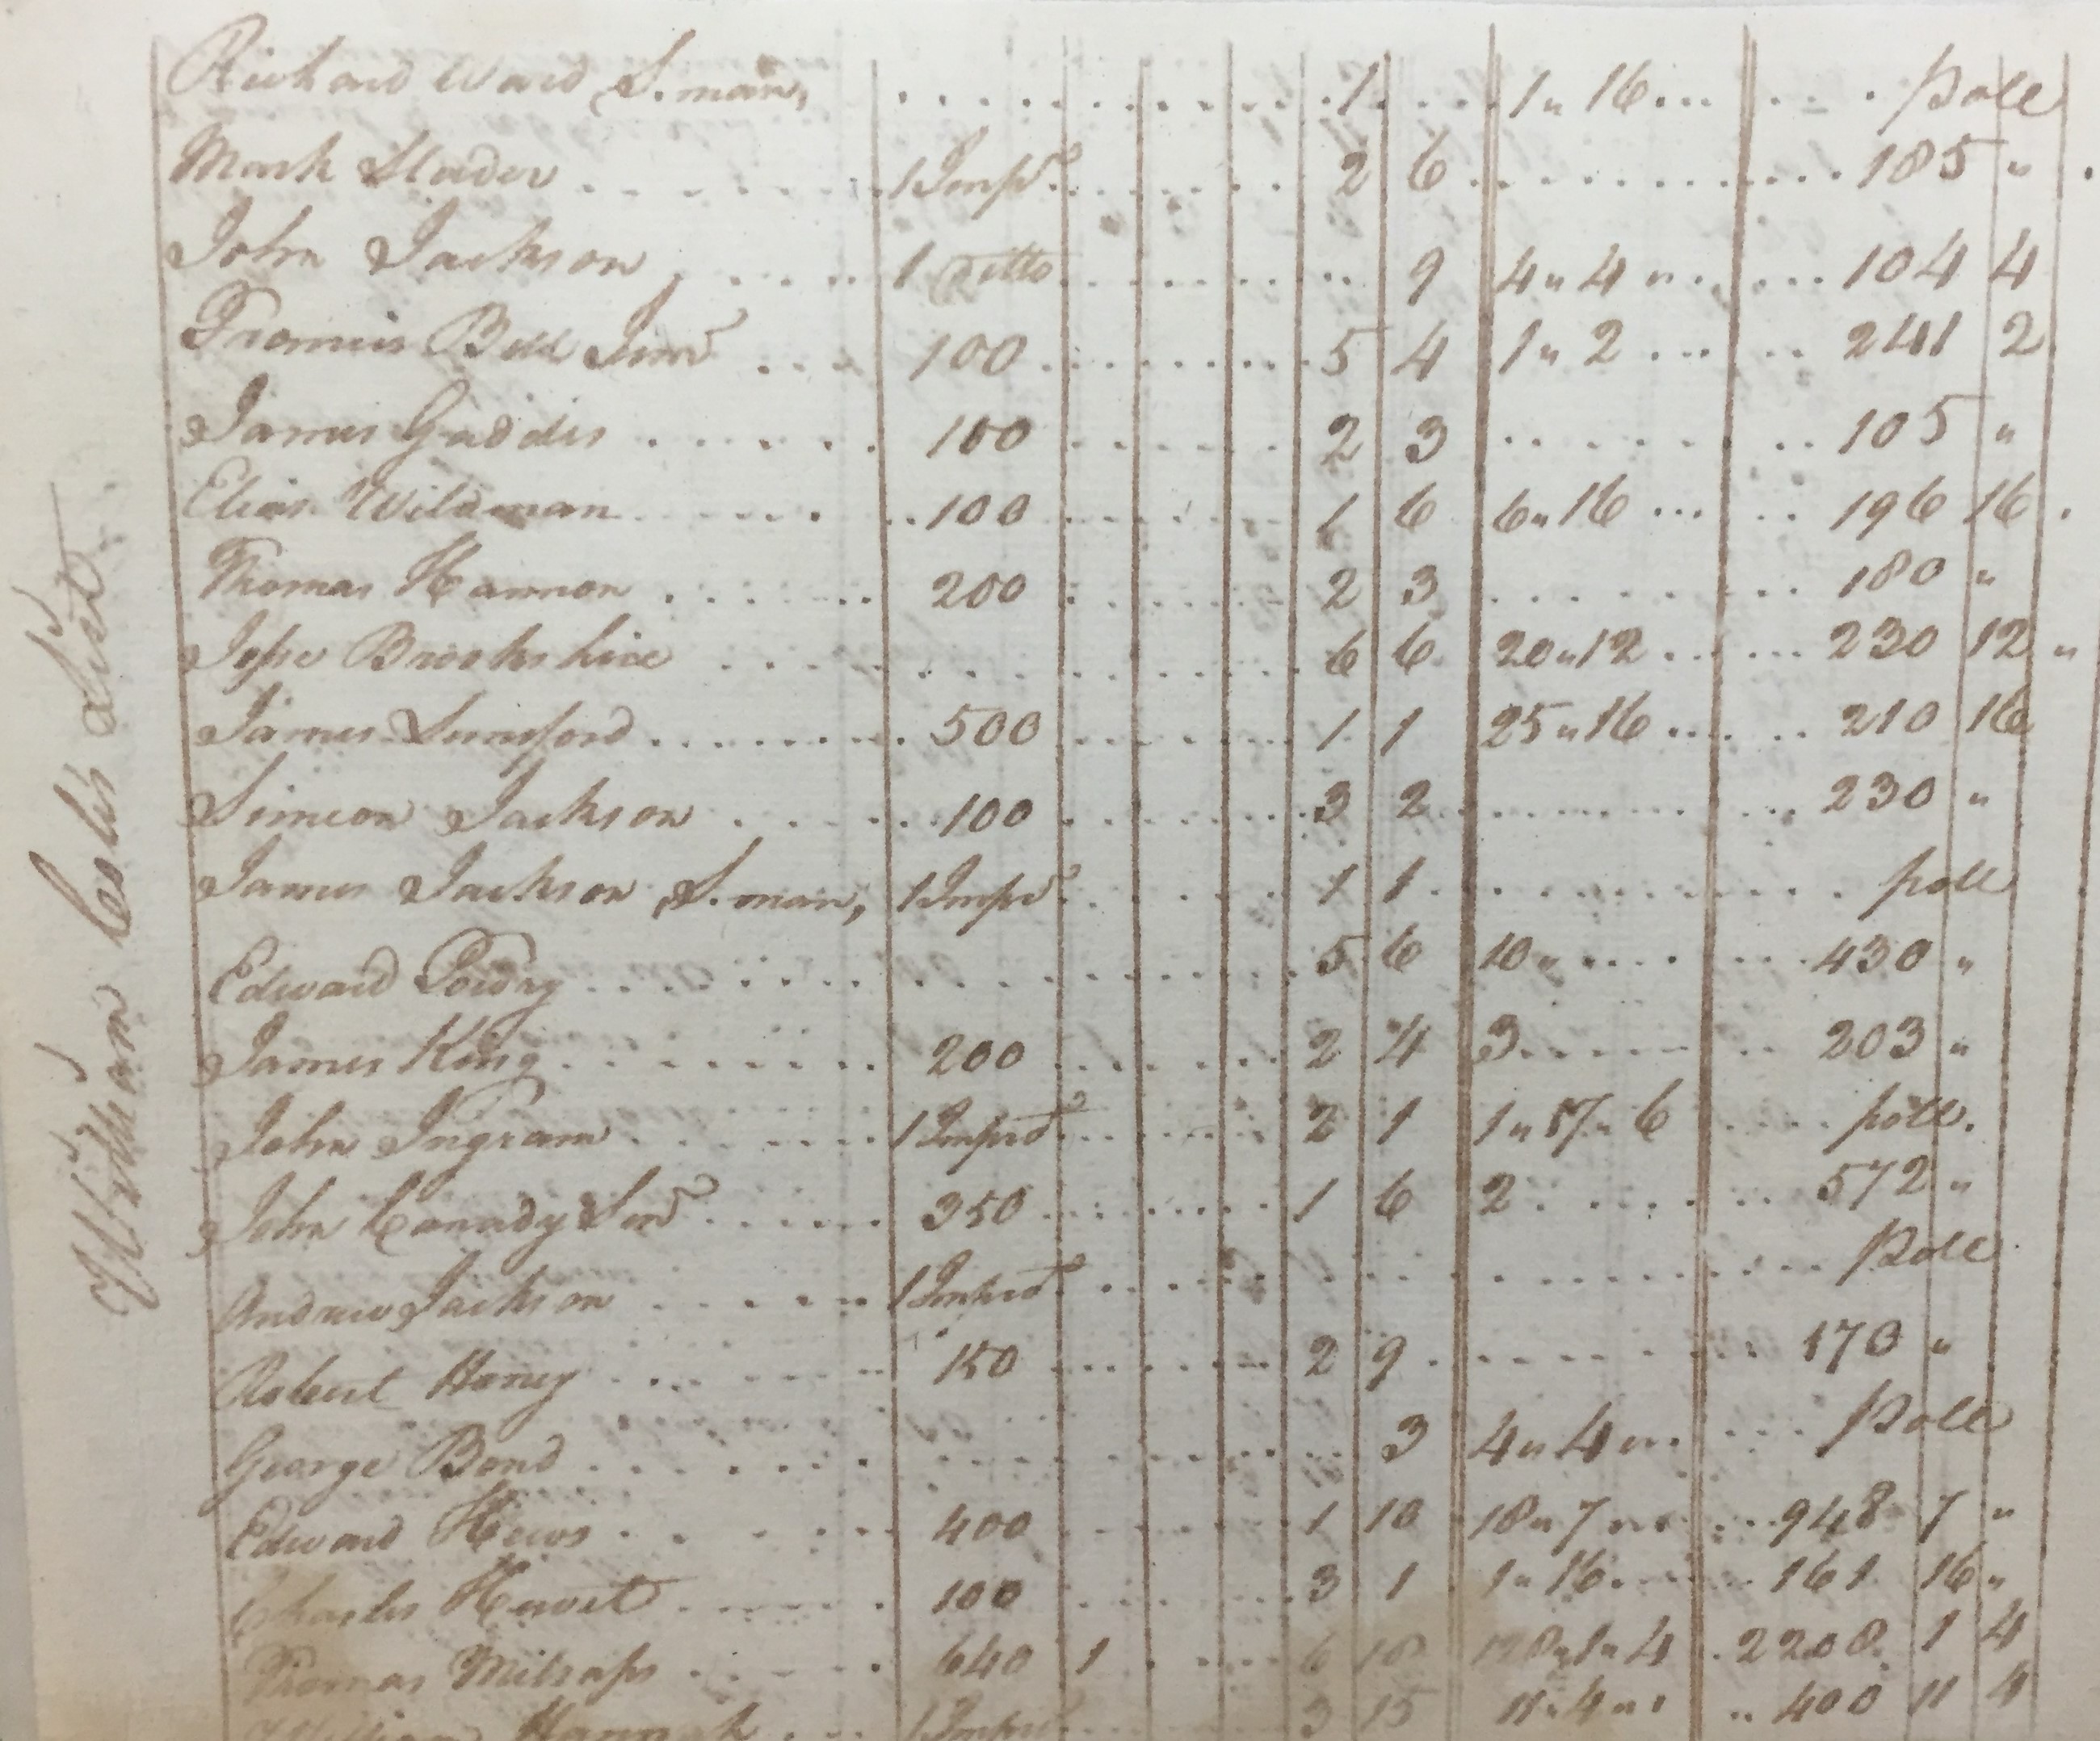 William Cole's List
Richard Ward S.man, 1 1 " 16 poll
Mark 1 Impr 2 6 185 "
John Jackson 1 Ditto 9 4 " 4 " 104 4
Bell Junr 100 5 4 1 " 2 241 2
James Gaddis 100 2 3 105 "
Elias Wildman 100 1 6 6 " 16 196 16
Thomas Hannon 200 2 3 180 "
Jesse Brookshire 6 6 20 " 12 230 12 "
James Lunsford 500 1 1 25 " 16 210 16
Simeon Jackson 100 3 2 230 "
James Jackson S.man, 1 Impr 1 1 poll
Edward 5 6 10 " 430 "
James King 200 2 4 3 203 "
John Ingram 1 Imprd 2 1 1 " 17 " 6 poll.
John Canady Senr 350 1 6 2 572 "
Andrew Jackson 1 Imprd Poll
Robert Haney 150 2 9 170 "
George Bond 3 4 " 4 " Poll
Edward Hews 400 1 10 18 " 7 " 948 7 "
Charles Hewet 100 3 1 1 " 16 161 16 "
Thomas Milsaps 640 1 6 18 128 " 1 " 4 2208 1 4
William Hannah 1 Impr 3 15 11 " 4 " 400 11 4